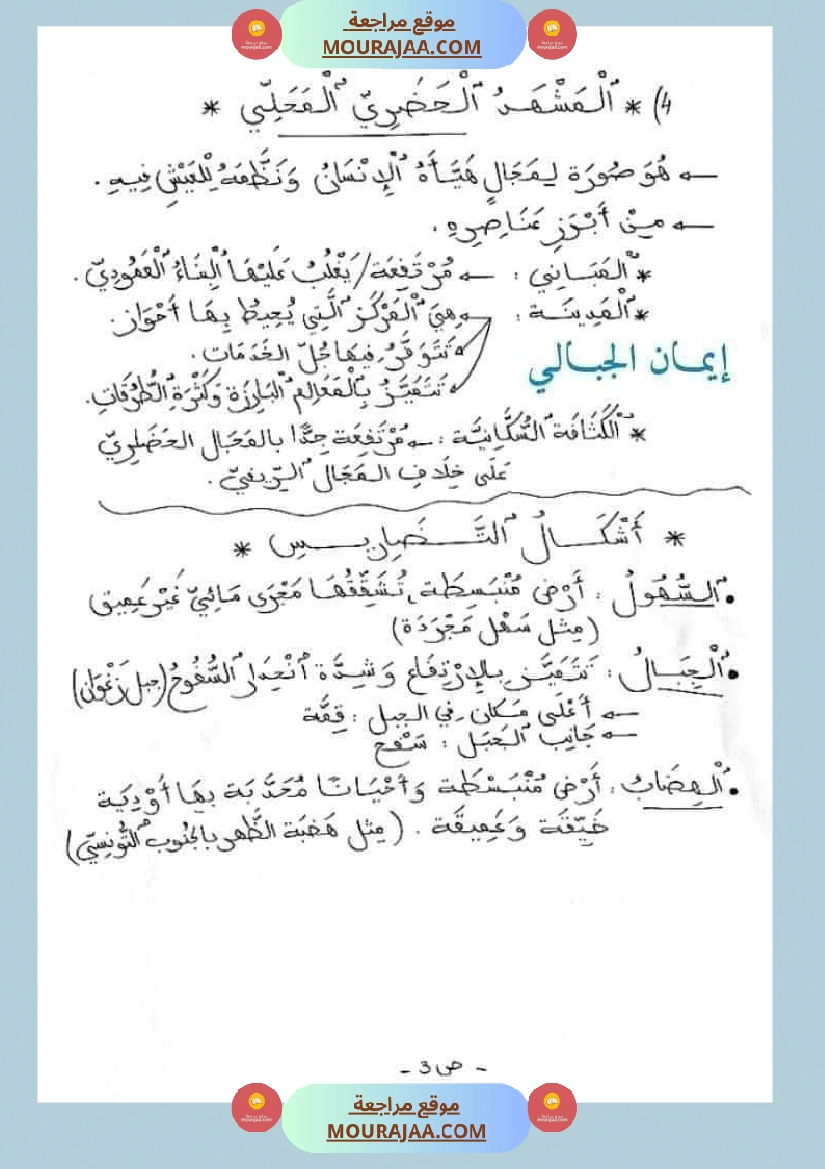 موقع مراجعة
MOURAJAA.COM
4) * اَلْمَشْهَدُ اَلْحَضَرِيّ اَلْمَحَلِّي *
← هُوَ صُورَة لِمَجَالٍ هَيَّأَهُ اَلْإِنْسَانُ وَنَظَّمَهُ لِلْعَيْشِ فِيهِ.
← مِنْ أَبْرَزِ عَنَاصِرِهِ.
* اَلْمَبَانِي : ← مُرْتَفِعَة/يَغْلُبُ عَلَيْهَا اَلْبِنَاءُ اَلْعَمُودِيّ.
* اَلْمَدِينَة : ← هِيَ اَلْمَرْكَز اَلَّتِي يُحِيطُ بِهَا أَحْوَاز.
تَتَوَفَّرُ فِيهَا جُلّ الخَدَمَات.
إيمان الجبالي
تَتَمَيَّزُ بِالْمَعَالِمِ اَلْبَارِزَةِ وَكَثْرَةِ اَلطُّرُقَاتِ.
* اَلْكَثَافَة اَلسُّكَّانِيَّة : ← مُرْتَفِعَة جِدًّا بالمَجَال الحَضَرِيّ
عَلَى خِلَافِ المَجَال اَلرِّيفِيّ.
* أَشْكَالُ اَلتَّضَارِيسِ *
• اَلسُّهُولُ : أَرْض مُنْبَسِطَة، تُشَقِّقُهَا مَجْرَى مَائِيّ غَيْر عَمِيق
(مِثل سَهْل مَجْرَدَة)
• اَلْجِبَالُ : تَتَمَيَّز بِالإِرْتِفَاع وَشِدَّة اَنْحِدَار اَلسُّفُوحُ (جبل زَغْوَان)
← أَعْلَى مَكَان فِي الجبل : قِمَّة
← جَانِب اَلْجَبَل : سَفْح
• اَلْهِضَابُ : أَرْض مُنْبَسْطَة وَأَحْيَانًا مُحَدَّبَة بِهَا أَوْدِيَة
ضَيِّقَة وَعَمِيقَة . (مِثل هَضبَة الظَّاهر بالجَنُوب اَلتُّونِسِيّ)
- ص 3 -
موقع مراجعة
MOURAJAA.COM